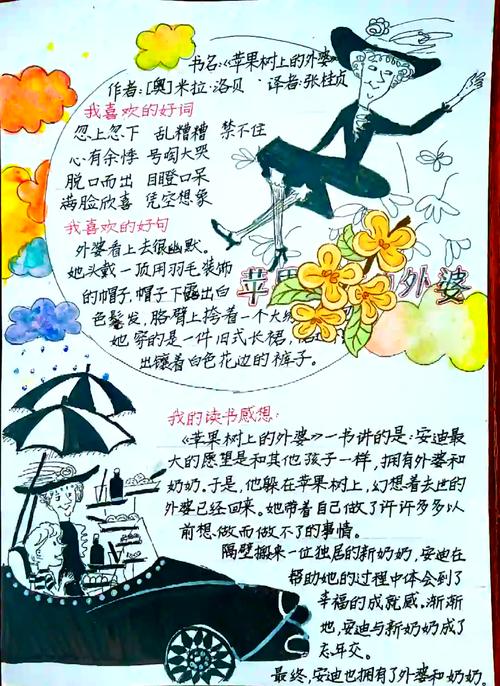 书名:《苹果树上的外婆》
作者:[奥]米拉·洛贝 译者:张桂贞
我喜欢的好词
忽上忽下 乱糟糟 禁不住
心有余悸 号啕大哭
脱口而出 目瞪口呆
满脸欣喜 凭空想象
我喜欢的好句
外婆看上去很幽默。
她头戴一顶用羽毛装饰
的帽子,帽子下露出白
色鬈发,胳臂上挎着一个大
她穿的是一件旧式长裙,
出镶着白色花边的裤子。
苹 外婆
我的读书感想:
《苹果树上的外婆》一书讲的是:安迪最
大的愿望是和其他孩子一样,拥有外婆和
奶奶。于是,他躲在苹果树上,幻想着去世的
外婆已经回来。她带着自己做了许许多多以
前想做而做不了的事情。
隔壁搬来一位独居的新奶奶,安迪在
帮助她的过程中体会到了
幸福的成就感。渐渐
地,安迪与新奶奶成了
忘年交。
最终,安迪也拥有了外婆和奶奶。